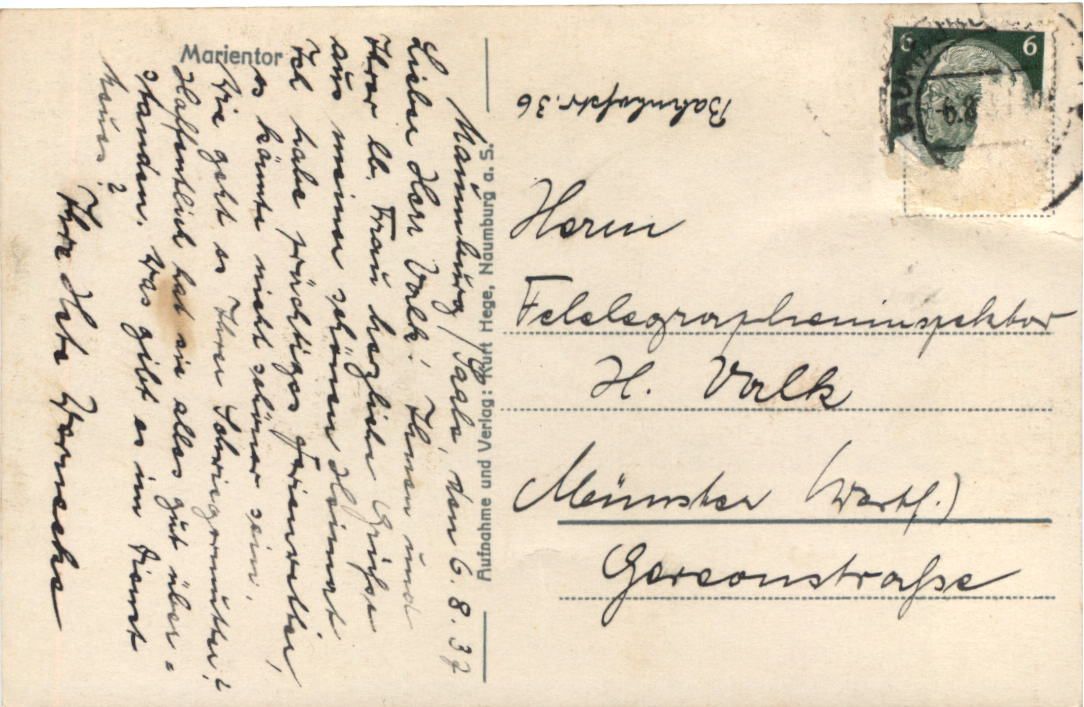 Marientor
Naumburg/Saale, den 6. 8. 37
Lieber Herr Valk! Ihnen und
Ihrer lb. Frau herzliche Grüße
aus meiner schönen Heimat
Ich habe prächtiges Ferienwetter,
es könnte nicht schöner sein.
Wie geht es Ihrer Schwiegermutter?
Hoffentlich hat sie alles gut über=
standen. Was gibt es im Dienst
Neues?
Ihre
Aufnahme und Verlag: Kurt Hege, Naumburg a. S.
Bahnhofstr. 36
6 6
6.8
Herrn
Telelegrapheninspektor
H. Valk
Münster (Westf.)
Gereonstraße